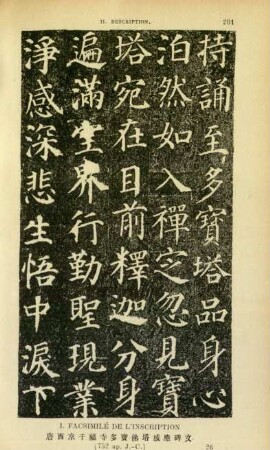 II. DESCRIPTION.
201
持誦至多寶塔品身心
泊然如入禪定忽見寶
塔宛在目前釋迦分身
遍滿空界行勤聖現業
淨感深悲生悟中淚下
I. FACSIMILÉ DE L'INSCRIPTION
唐西京千福寺多寶佛塔感應碑文
(752 ap. J.-C.)
26